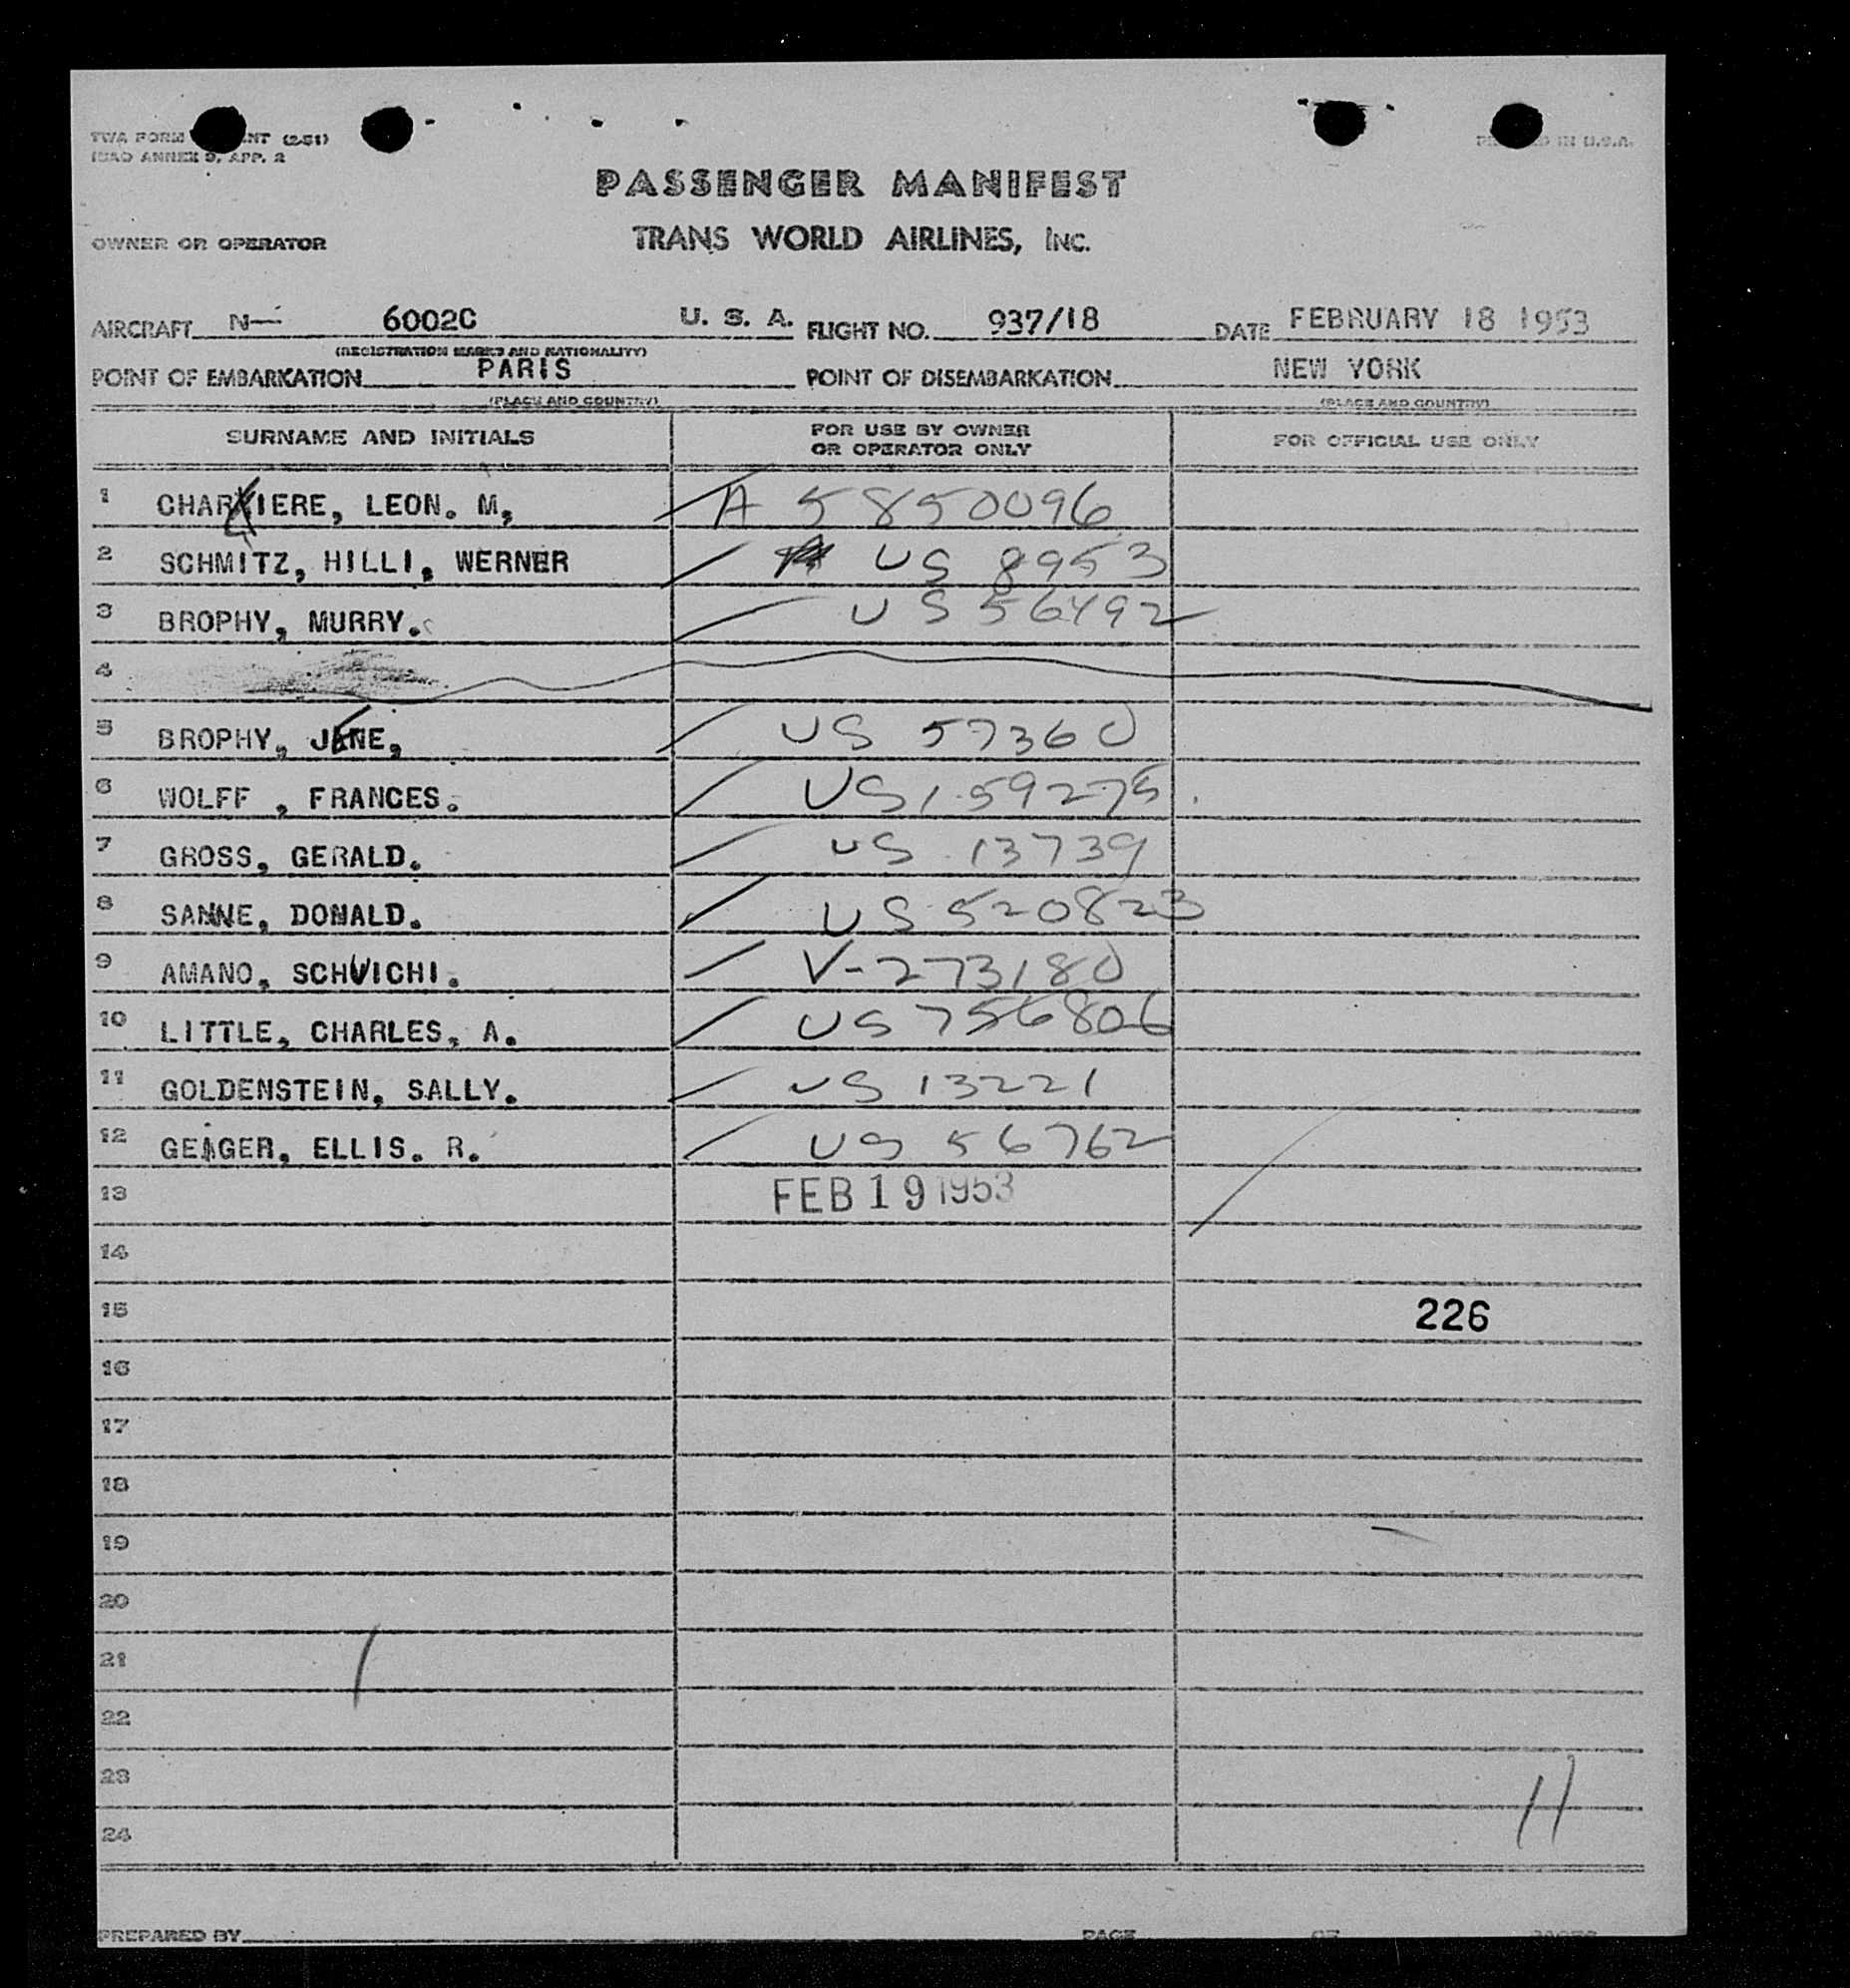 TWA FORM ENT (2-51)
ICAO ANNEX 9, APP. 2
IN U.S.A.
PASSENGER MANIFEST
OWNER OR OPERATOR TRANS WORLD AIRLINES, INC.
AIRCRAFT N- 6002C U. S. A. FLIGHT NO. 937/18 DATE FEBRUARY 18 1953
(REGISTRATION MARKS AND NATIONALITY)
POINT OF EMBARKATION PARIS POINT OF DISEMBARKATION NEW YORK
(PLACE AND COUNTRY) (PLACE AND COUNTRY)
SURNAME AND INITIALS FOR USE BY OWNER OR OPERATOR ONLY FOR OFFICIAL USE ONLY
1 LEON. M, A 5850096
2 SCHMITZ, HILLI, WERNER US 8953
3 BROPHY, MURRY. US 56492
4
5 BROPHY, US 57360
6 WOLFF , FRANCES. US 159275
7 GROSS, GERALD. US 13739
8 SANNE, DONALD. US 520823
9 AMANO, SCHUICHI. V-273180
10 LITTLE, CHARLES, A. US 756806
11 GOLDENSTEIN, SALLY. US 13221
12 ELLIS. R. US 56762
13 FEB 19 1953
14
15 226
16
17
18
19
20
21
22
23 11
24
PREPARED BY PAGE OF PAGES